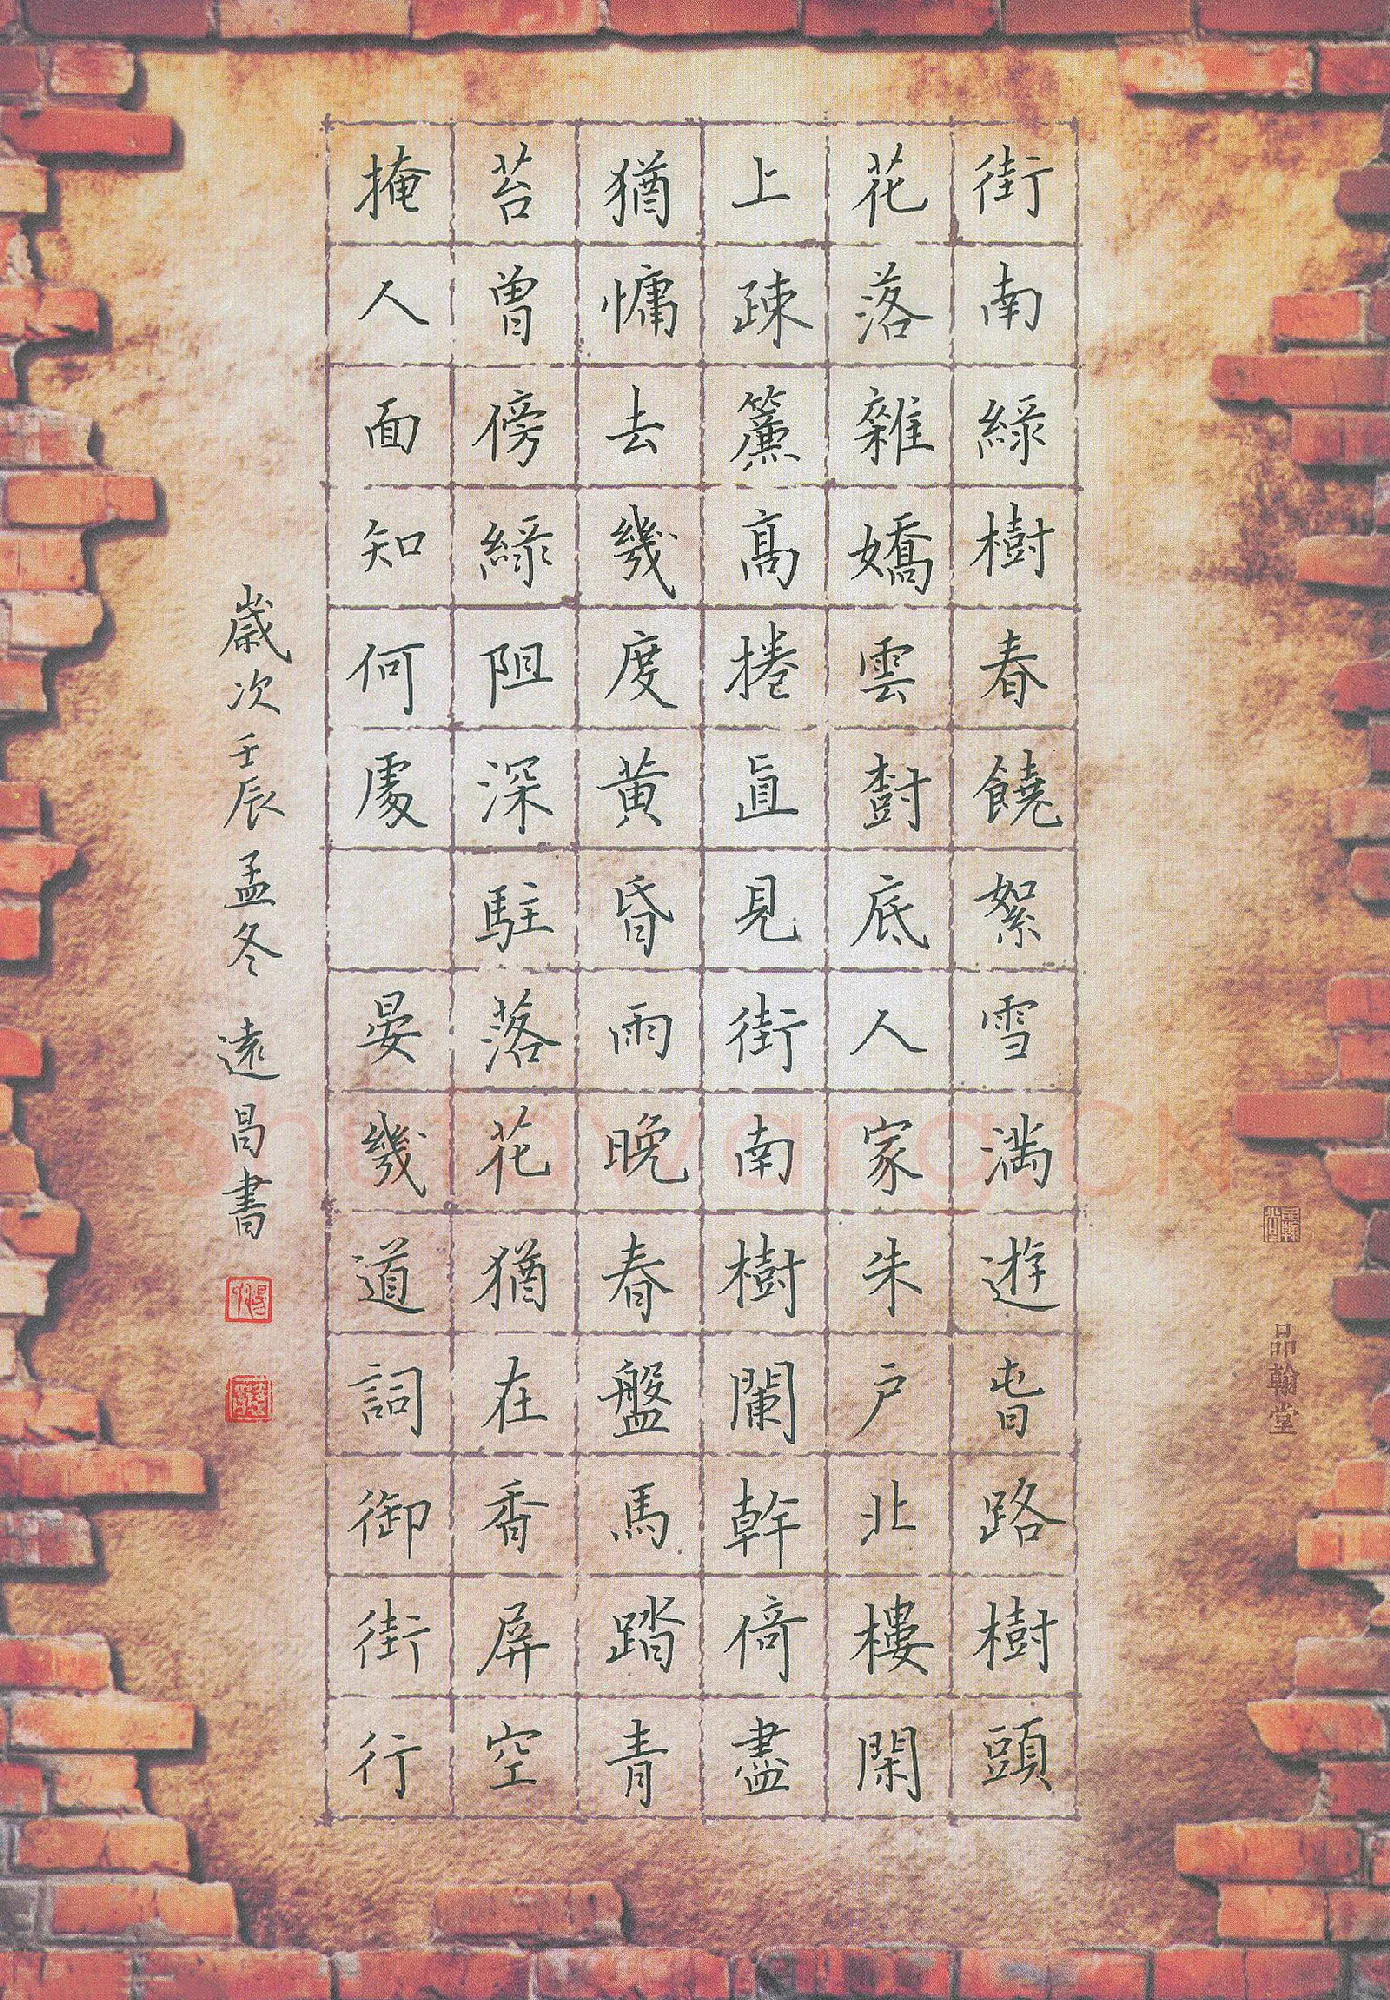 街南綠樹春饒絮雪滿遊春路樹頭
花落雜嬌雲樹底人家朱戶北樓閑
上疎簾高捲直見街南樹闌幹倚盡
猶慵去幾度黃昏雨晚春盤馬踏青
苔曾傍綠陰深駐落花猶在香屏空
掩人面知何處 晏幾道詞御街行
歲次壬辰孟冬遠昌書
品翰堂